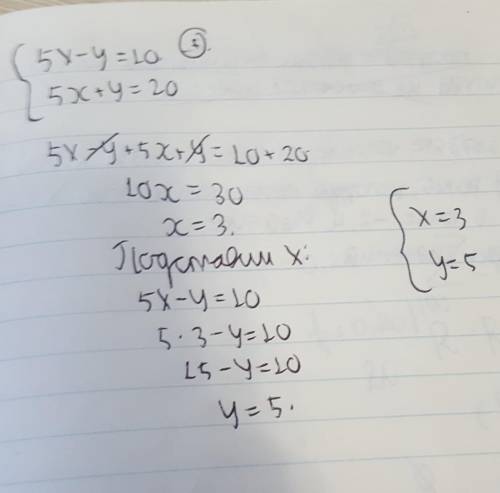 5x-y=10 3.
5x+y=20
5x-y+5x+y=10+20
10x=30
x=3.
Подставим x:
5x-y=10
5·3-y=10
15-y=10
y=5.
x=3
y=5